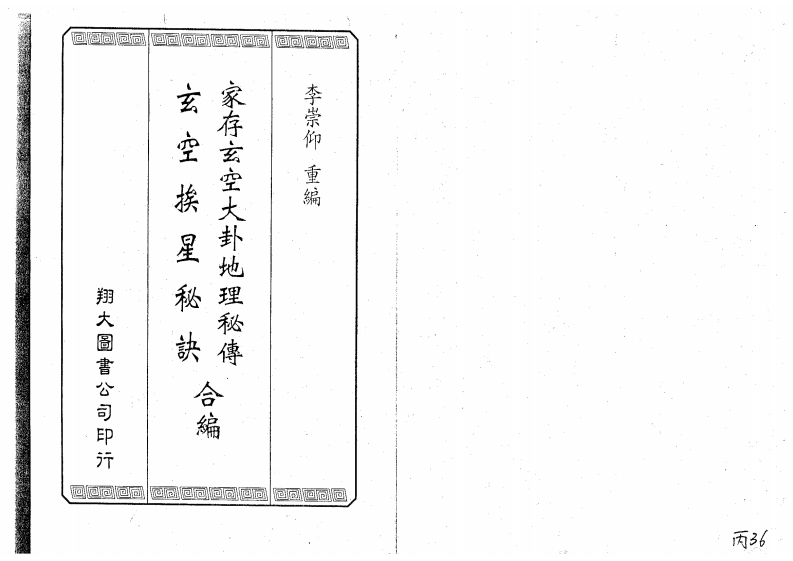 李崇仰 重編
家存玄空大卦地理秘傳
玄空挨星秘訣
合編
翔大圖書公司印行
丙36